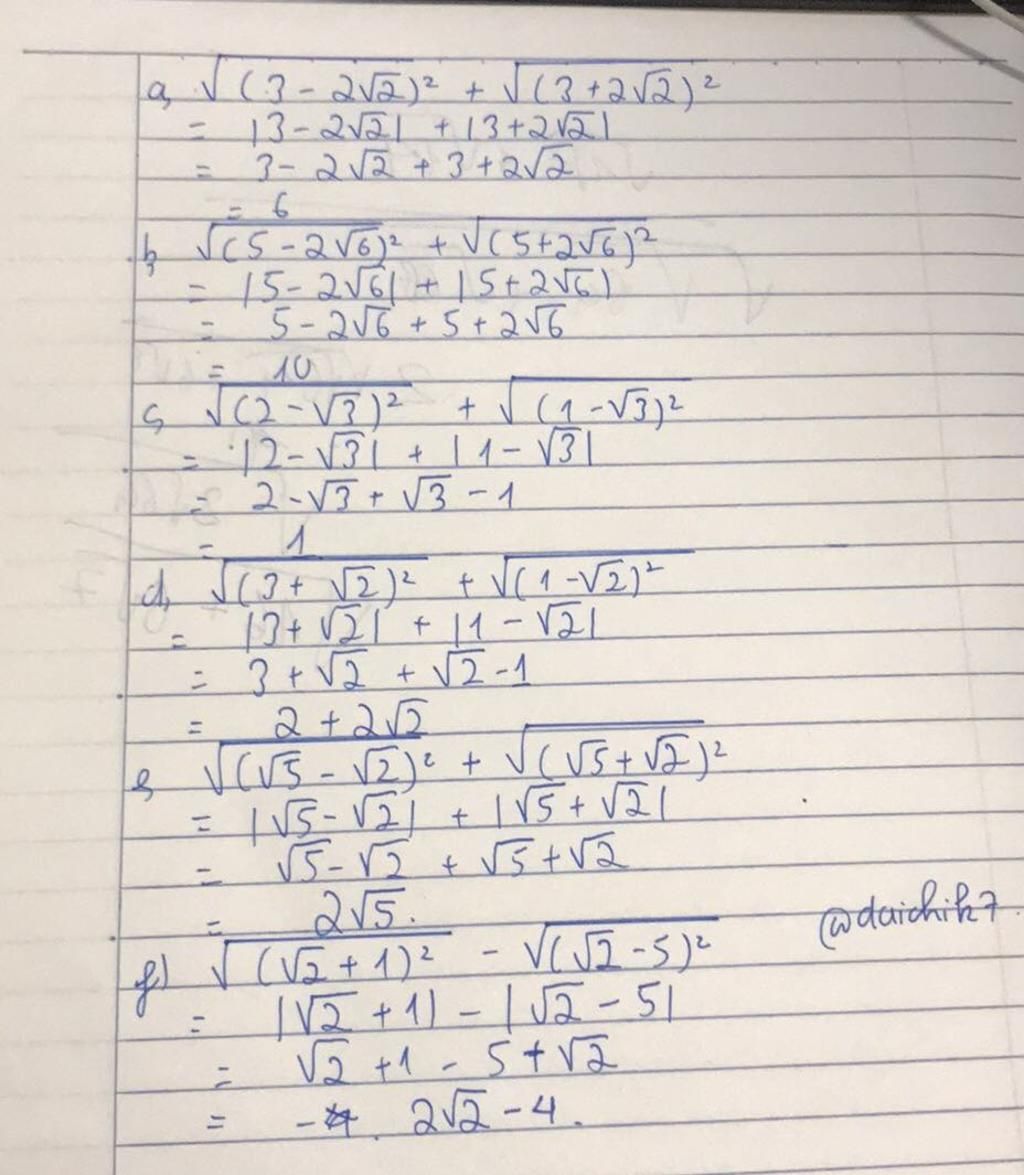 a, √(3 - 2√2)² + √(3 + 2√2)²
= |3 - 2√2| + |3 + 2√2|
= 3 - 2√2 + 3 + 2√2
= 6
b, √(5 - 2√6)² + √(5 + 2√6)²
= |5 - 2√6| + |5 + 2√6|
= 5 - 2√6 + 5 + 2√6
= 10
c, √(2 - √3)² + √(1 - √3)²
= |2 - √3| + |1 - √3|
= 2 - √3 + √3 - 1
= 1
d, √(3 + √2)² + √(1 - √2)²
= |3 + √2| + |1 - √2|
= 3 + √2 + √2 - 1
= 2 + 2√2
e, √(√5 - √2)² + √(√5 + √2)²
= |√5 - √2| + |√5 + √2|
= √5 - √2 + √5 + √2
= 2√5.
@daichik7
f) √(√2 + 1)² - √(√2 - 5)²
= |√2 + 1| - |√2 - 5|
= √2 + 1 - 5 + √2
= 2√2 - 4.